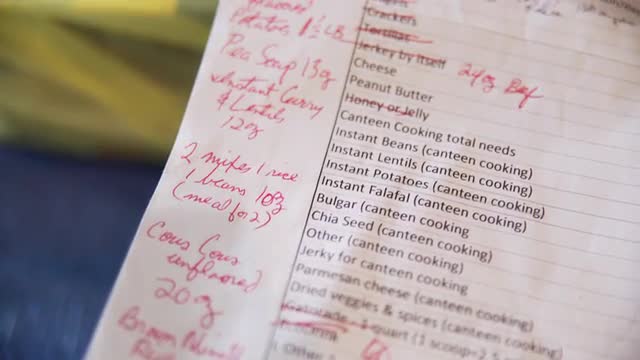 Potatoes 1½ LB
Pea Soup 13 oz
Instant Curry
& Lentils
12 oz
2 mixes 1 rice
1 beans 10 oz
(meal for 2)
Cous Cous
unflavored
20 oz
Brown
Crackers
Tortillas
Jerkey by itself 24 oz Beef
Cheese
Peanut Butter
Honey or Jelly
Canteen Cooking total needs
Instant Beans (canteen cooking)
Instant Lentils (canteen cooking)
Instant Potatoes (canteen cooking)
Instant Falafal (canteen cooking)
Bulgar (canteen cooking
Chia Seed (canteen cooking)
Other (canteen cooking)
Jerky for canteen cooking
Parmesan cheese (canteen cooking)
Dried veggies & spices (canteen cooking)
Gatorade - 1 quart (1 scoop=
Other